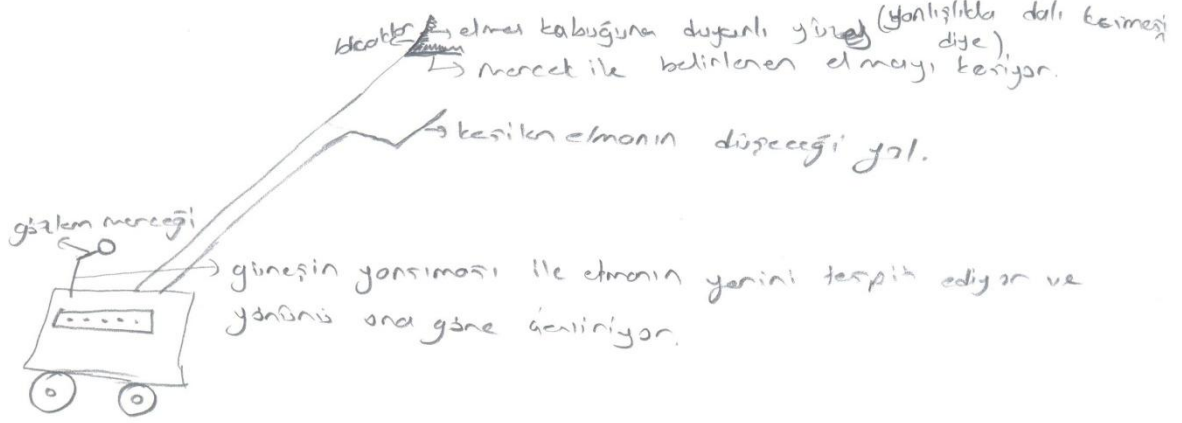 bıçaklar
elma kabuğuna duyarlı yüzey (yanlışlıkla dalı kesmesin
diye).
mercek ile belirlenen elmayı kesiyor.
kesilen elmanın düşeceği yol.
gözlem merceği
güneşin yansıması ile elmanın yerini tespit ediyor ve
yönünü ona göre çeviriyor.